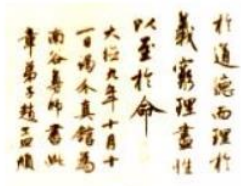 於道德而理於
義窮理盡性
以至於命
大德九年十月十
一日寓介真館為
南谷尊師書此
章弟子趙孟頫